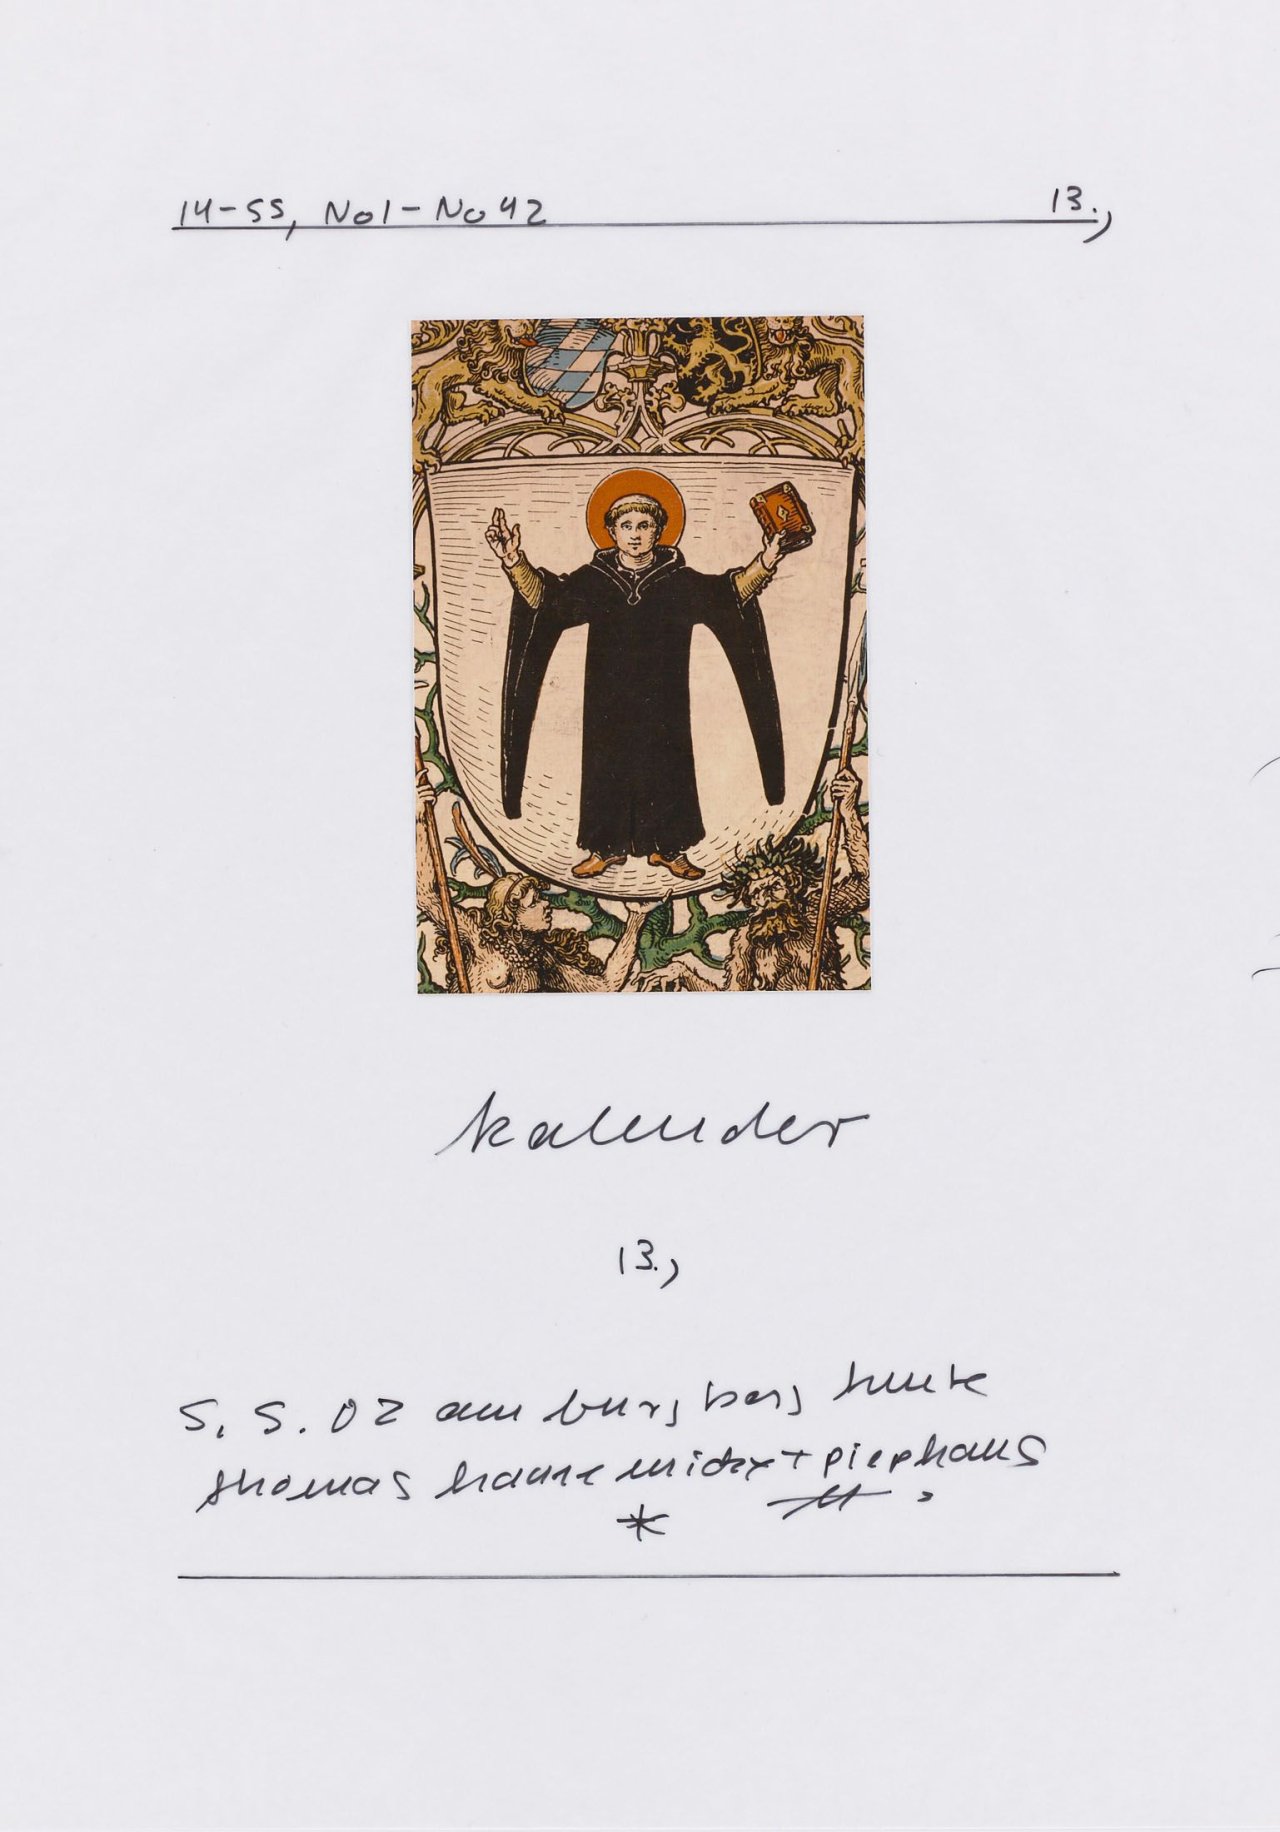 14-55, No1-No42 13.,
kalender
13.,
5. 5. 02 am burgberg heute
thomas + piephaus